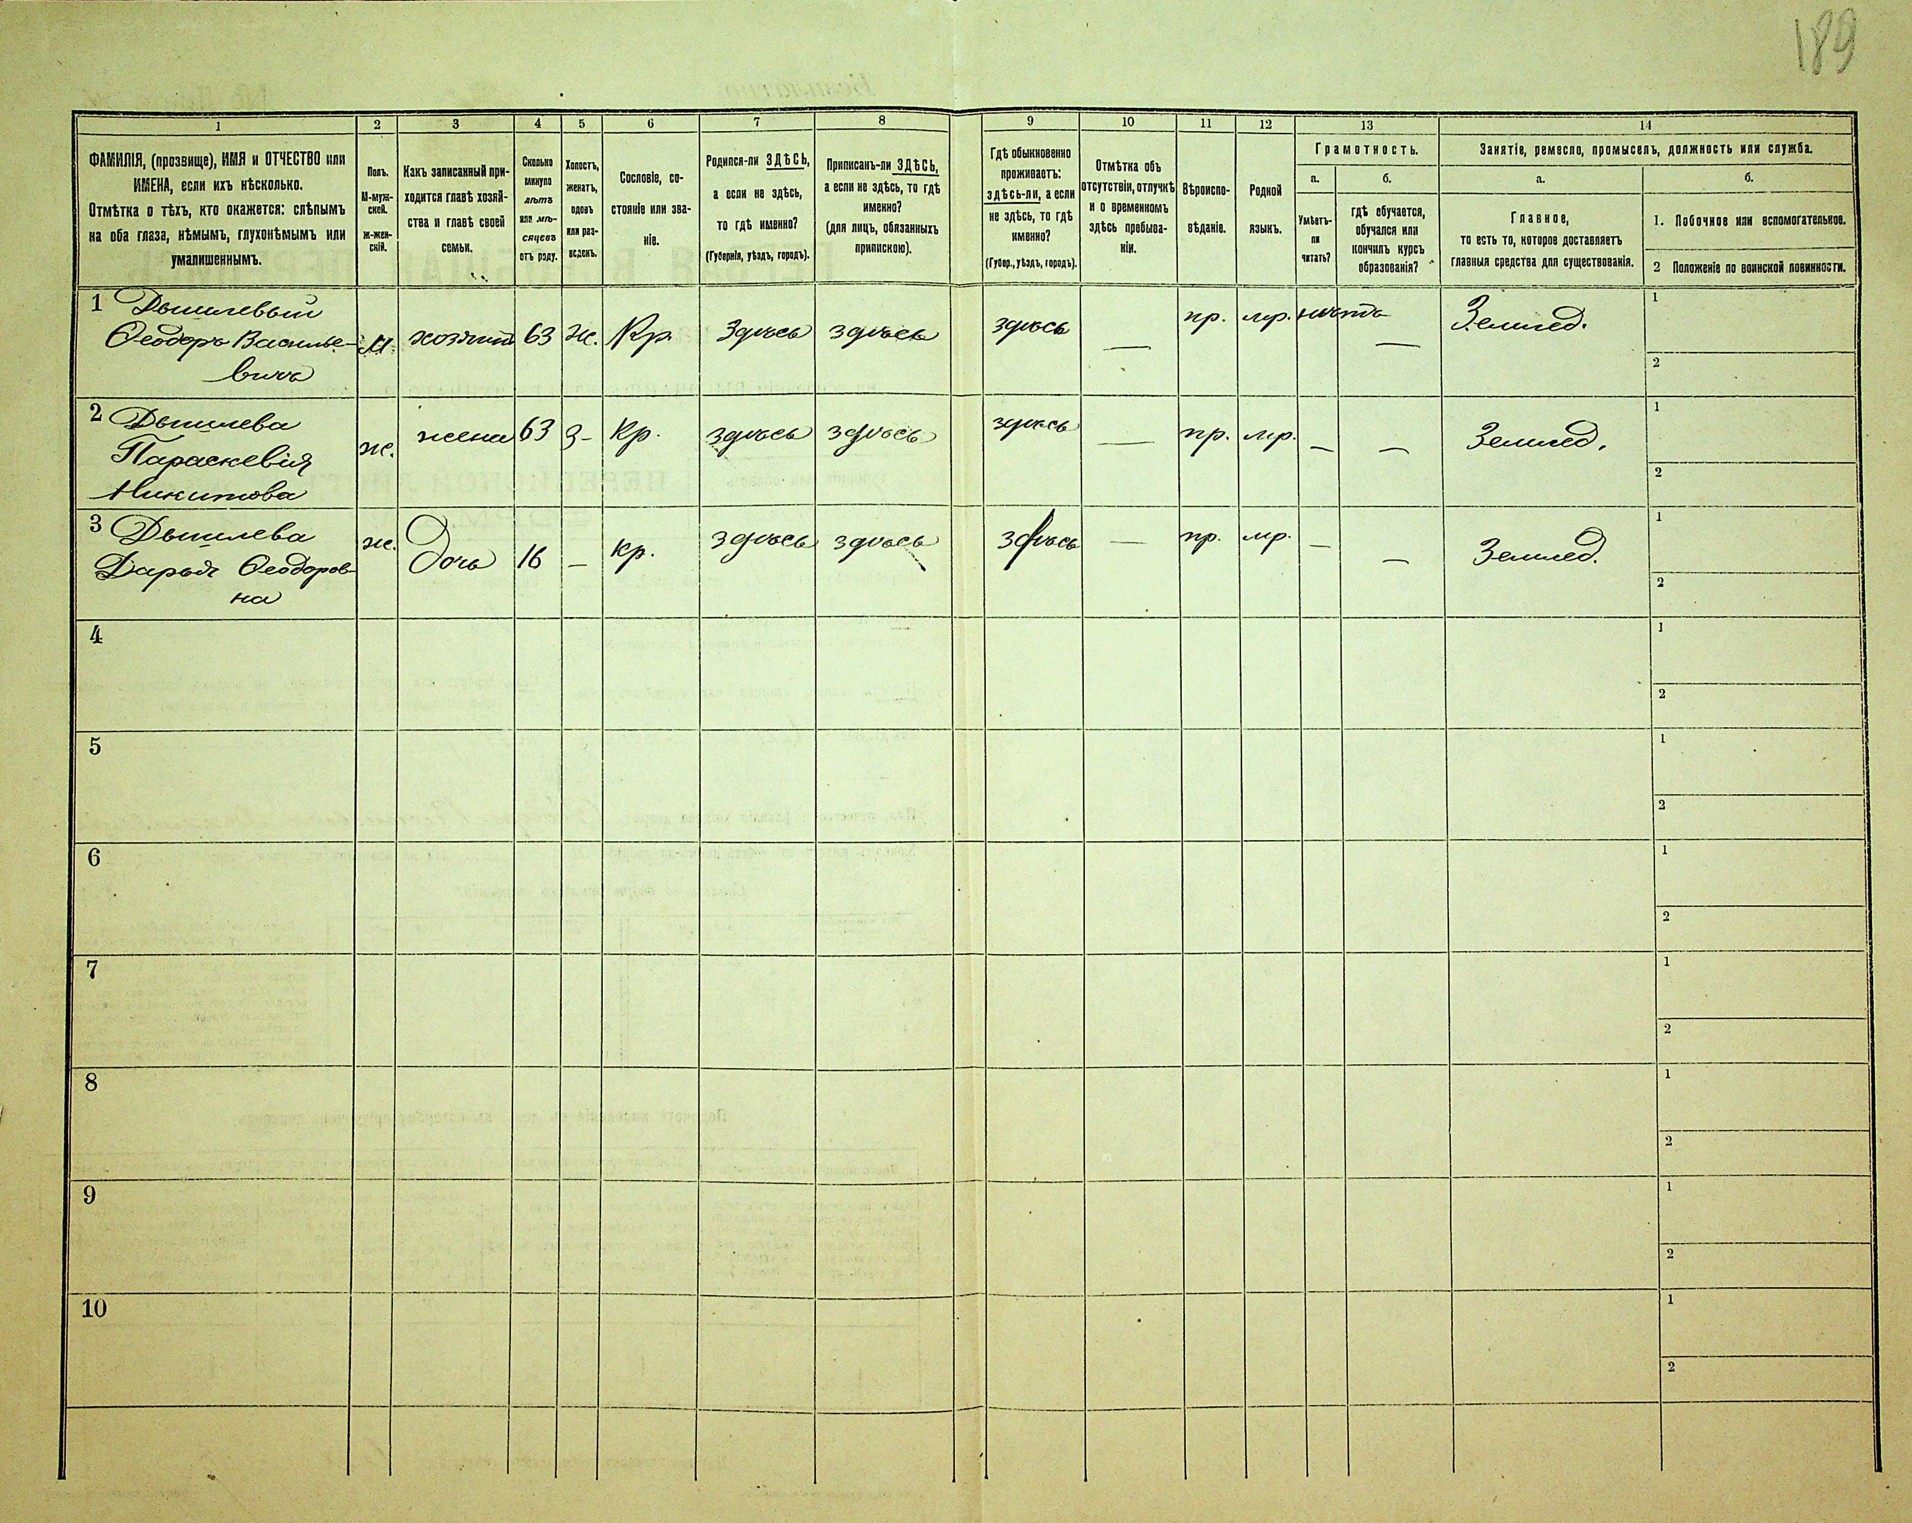 189
1 2 3 4 5 6 7 8 9 10 11 12 13 14
ФАМИЛІЯ, (прозвище), ИМЯ и ОТЧЕСТВО или
ИМЕНА, если ихъ нѣсколько.
Отмѣтка о тѣхъ, кто окажется: слѣпымъ
на оба глаза, нѣмымъ, глухонѣмымъ или
умалишеннымъ.
Полъ.
М-муж-
ской.
ж-жен-
скій.
Какъ записанный при-
ходится главѣ хозяй-
ства и главѣ своей
семьи.
Сколько
минуло
лѣтъ
или мѣ-
сяцевъ
отъ роду.
Холостъ,
женатъ,
вдовъ
или раз-
веденъ.
Сословіе, со-
стояніе или зва-
ніе.
Родился-ли ЗДѢСЬ,
а если не здѣсь,
то гдѣ именно?
(Губернія, уѣздъ, городъ).
Приписанъ-ли ЗДѢСЬ,
а если не здѣсь, то гдѣ
именно?
(для лицъ, обязанныхъ
припискою).
Гдѣ обыкновенно
проживаетъ:
здѣсь-ли, а если
не здѣсь, то гдѣ
именно?
(Губер., уѣздъ, городъ).
Отмѣтка объ
отсутствіи, отлучкѣ
и о временномъ
здѣсь пребыва-
ніи.
Вѣроиспо-
вѣданіе.
Родной
языкъ.
Грамотность.
а.
Умѣетъ-
ли
читать?
б.
гдѣ обучается,
обучался или
кончилъ курсъ
образованія?
Занятіе, ремесло, промыселъ, должность или служба.
а.
Главное,
то есть то, которое доставляетъ
главныя средства для существованія.
б.
1. Побочное или вспомогательное.
2 Положеніе по воинской повинности.
1 Дышлевый
Ѳеодоръ Василье-
вичъ
м. хозяинъ 63 ж. Кр. Здѣсь здѣсь здѣсь — пр. мр. нѣтъ — Землед.
1
2
2 Дышлева
Параскевія
Никитова
ж. жена 63 З- кр. здѣсь здѣсь здѣсь — пр. мр. — — Землед.
1
2
3 Дышлева
Дарья Ѳеодоров-
на
ж. Дочь 16 — кр. здѣсь здѣсь здѣсь — пр. мр. — — Землед.
1
2
4
1
2
5
1
2
6
1
2
7
1
2
8
1
2
9
1
2
10
1
2